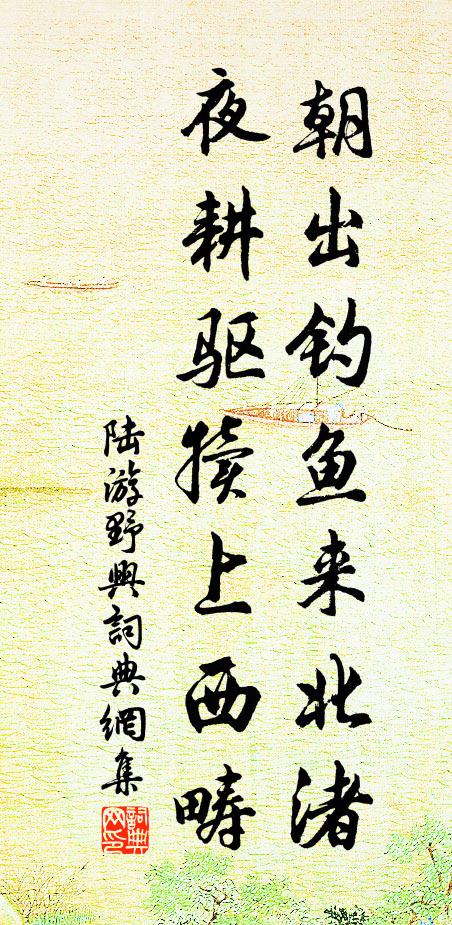 朝出钓鱼来北渚
夜耕驱犊上西畴
陆游野興詞典網集
詞典网印